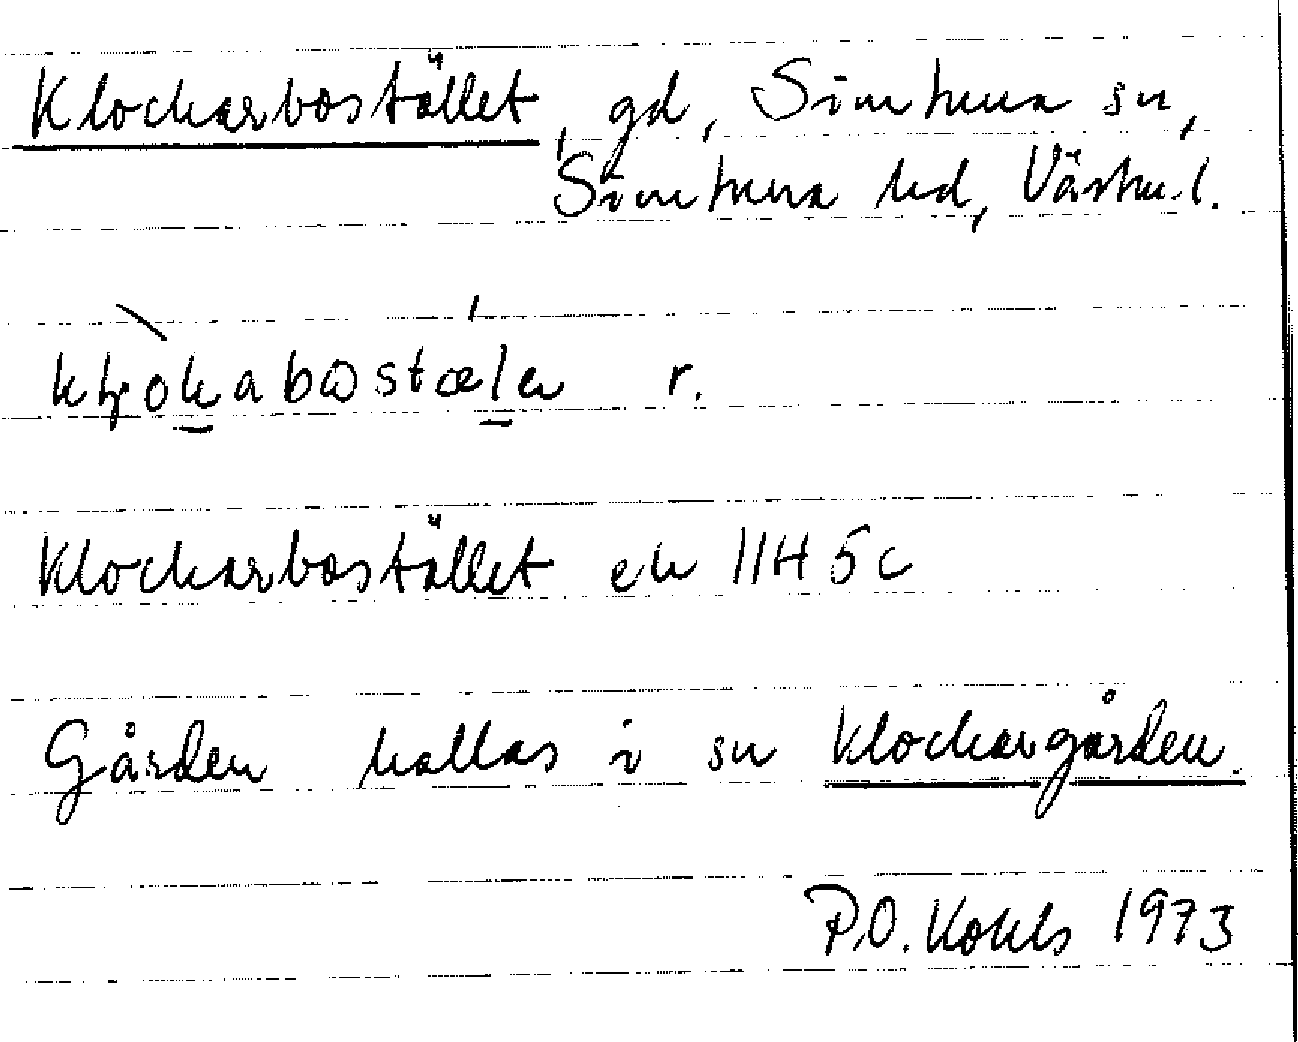 Klockarbostället, gd, Simtuna sn,
Simtuna hd, Västm.l.
r.
Klockarbostället ek 11H 5c
Gården kallas i sn Klockargården.
P.O. Kohls 1973